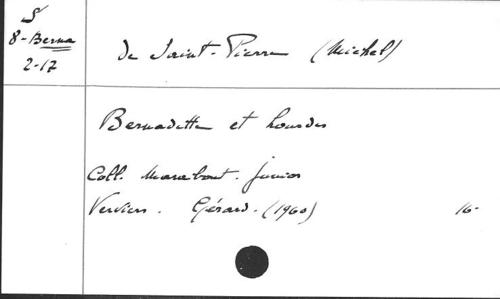 S
8-Berna
2-17
de Saint-Pierre (Michel)
Bernadette et Lourdes
Coll. Marabout. junior
Verviers. Gérard. (1960) 16-